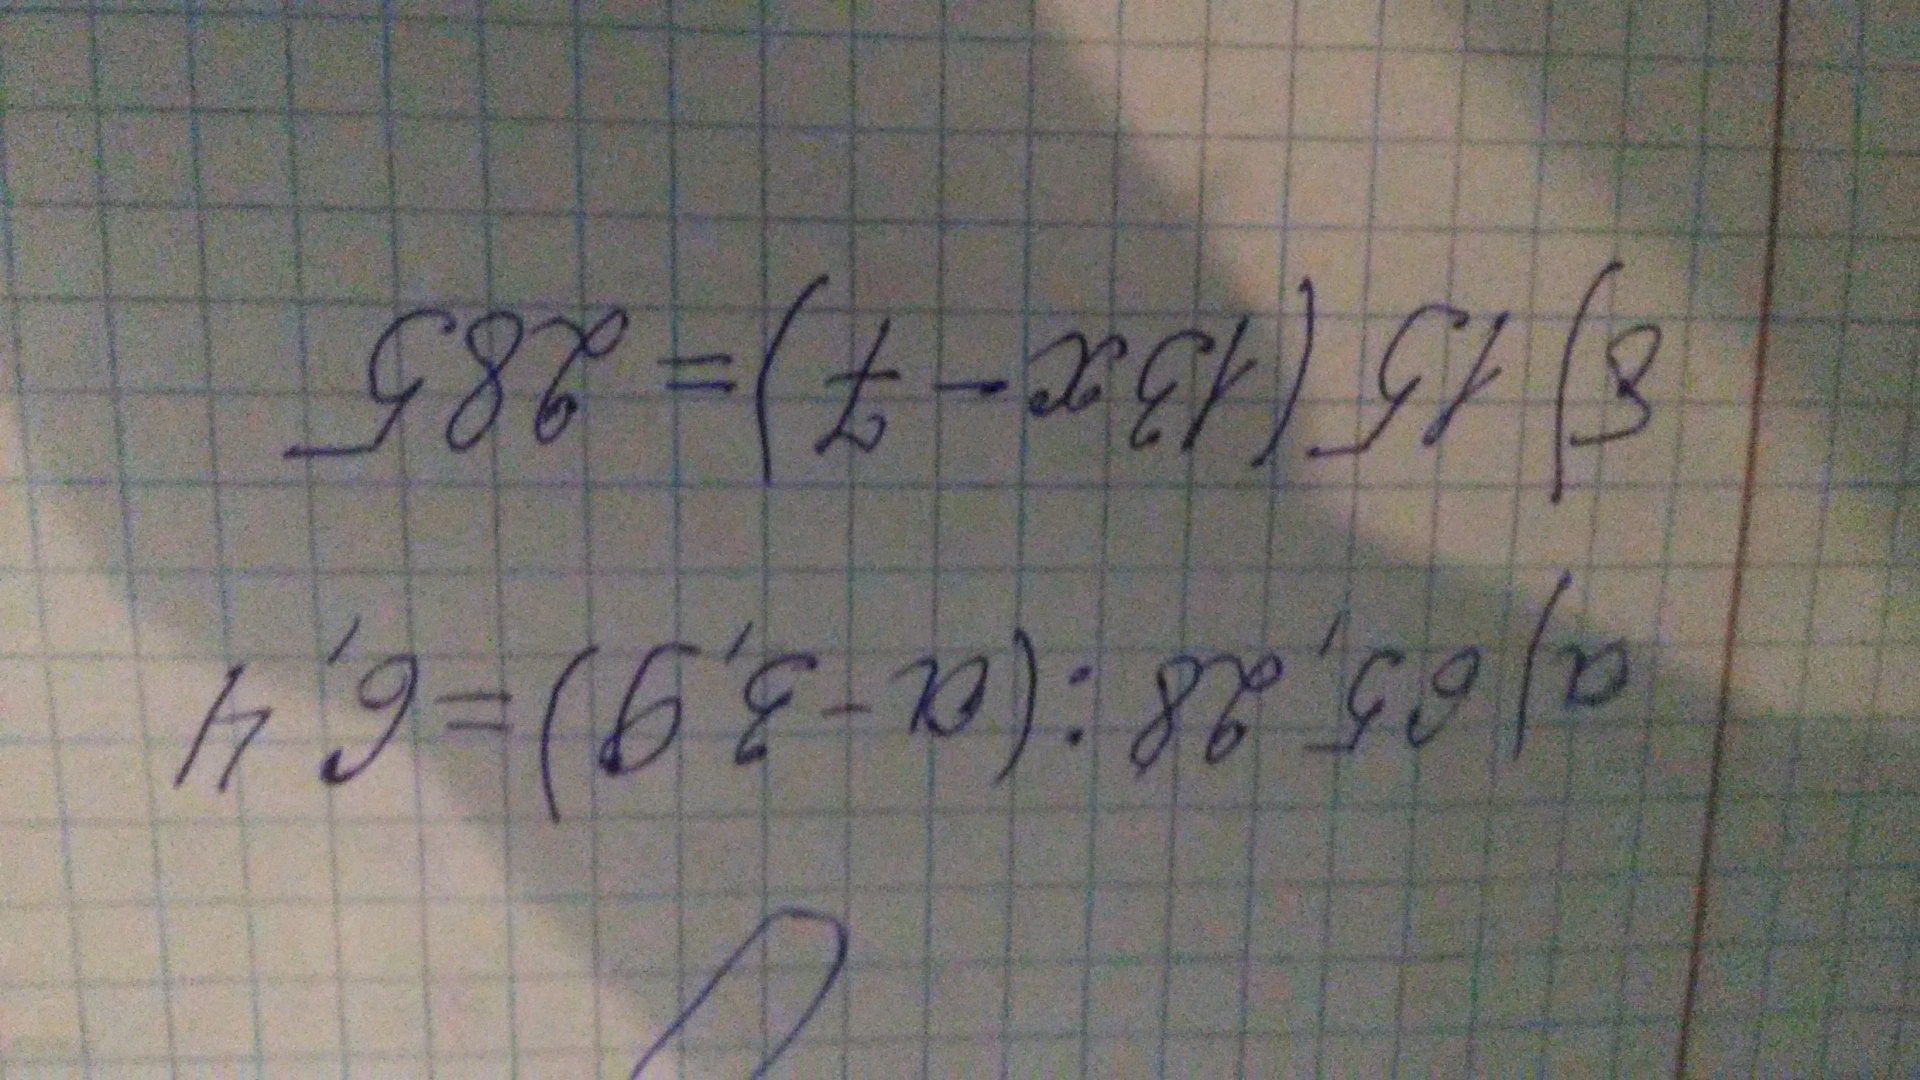 а) 65,28 : (а - 3,9) = 6,4
в) 15 (13x - 7) = 285